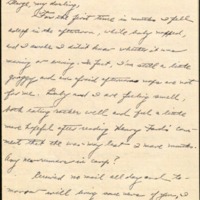 my darling,
For the first time in months I fell
asleep in the afternoon, while baby napped,
and I woke I didn't know whether it was
morning or evening. In fact, I'm still a little
groggy and am afraid afternoon naps are not
for me. Baby and I are feeling swell,
both eating rather well, and feel a lot
more hopeful after reading Henry Ford's com-
ment that the war may last 2 more months.
Any concurrence in camp?
Received no mail all day and to-
morrow will bring some news of you, I